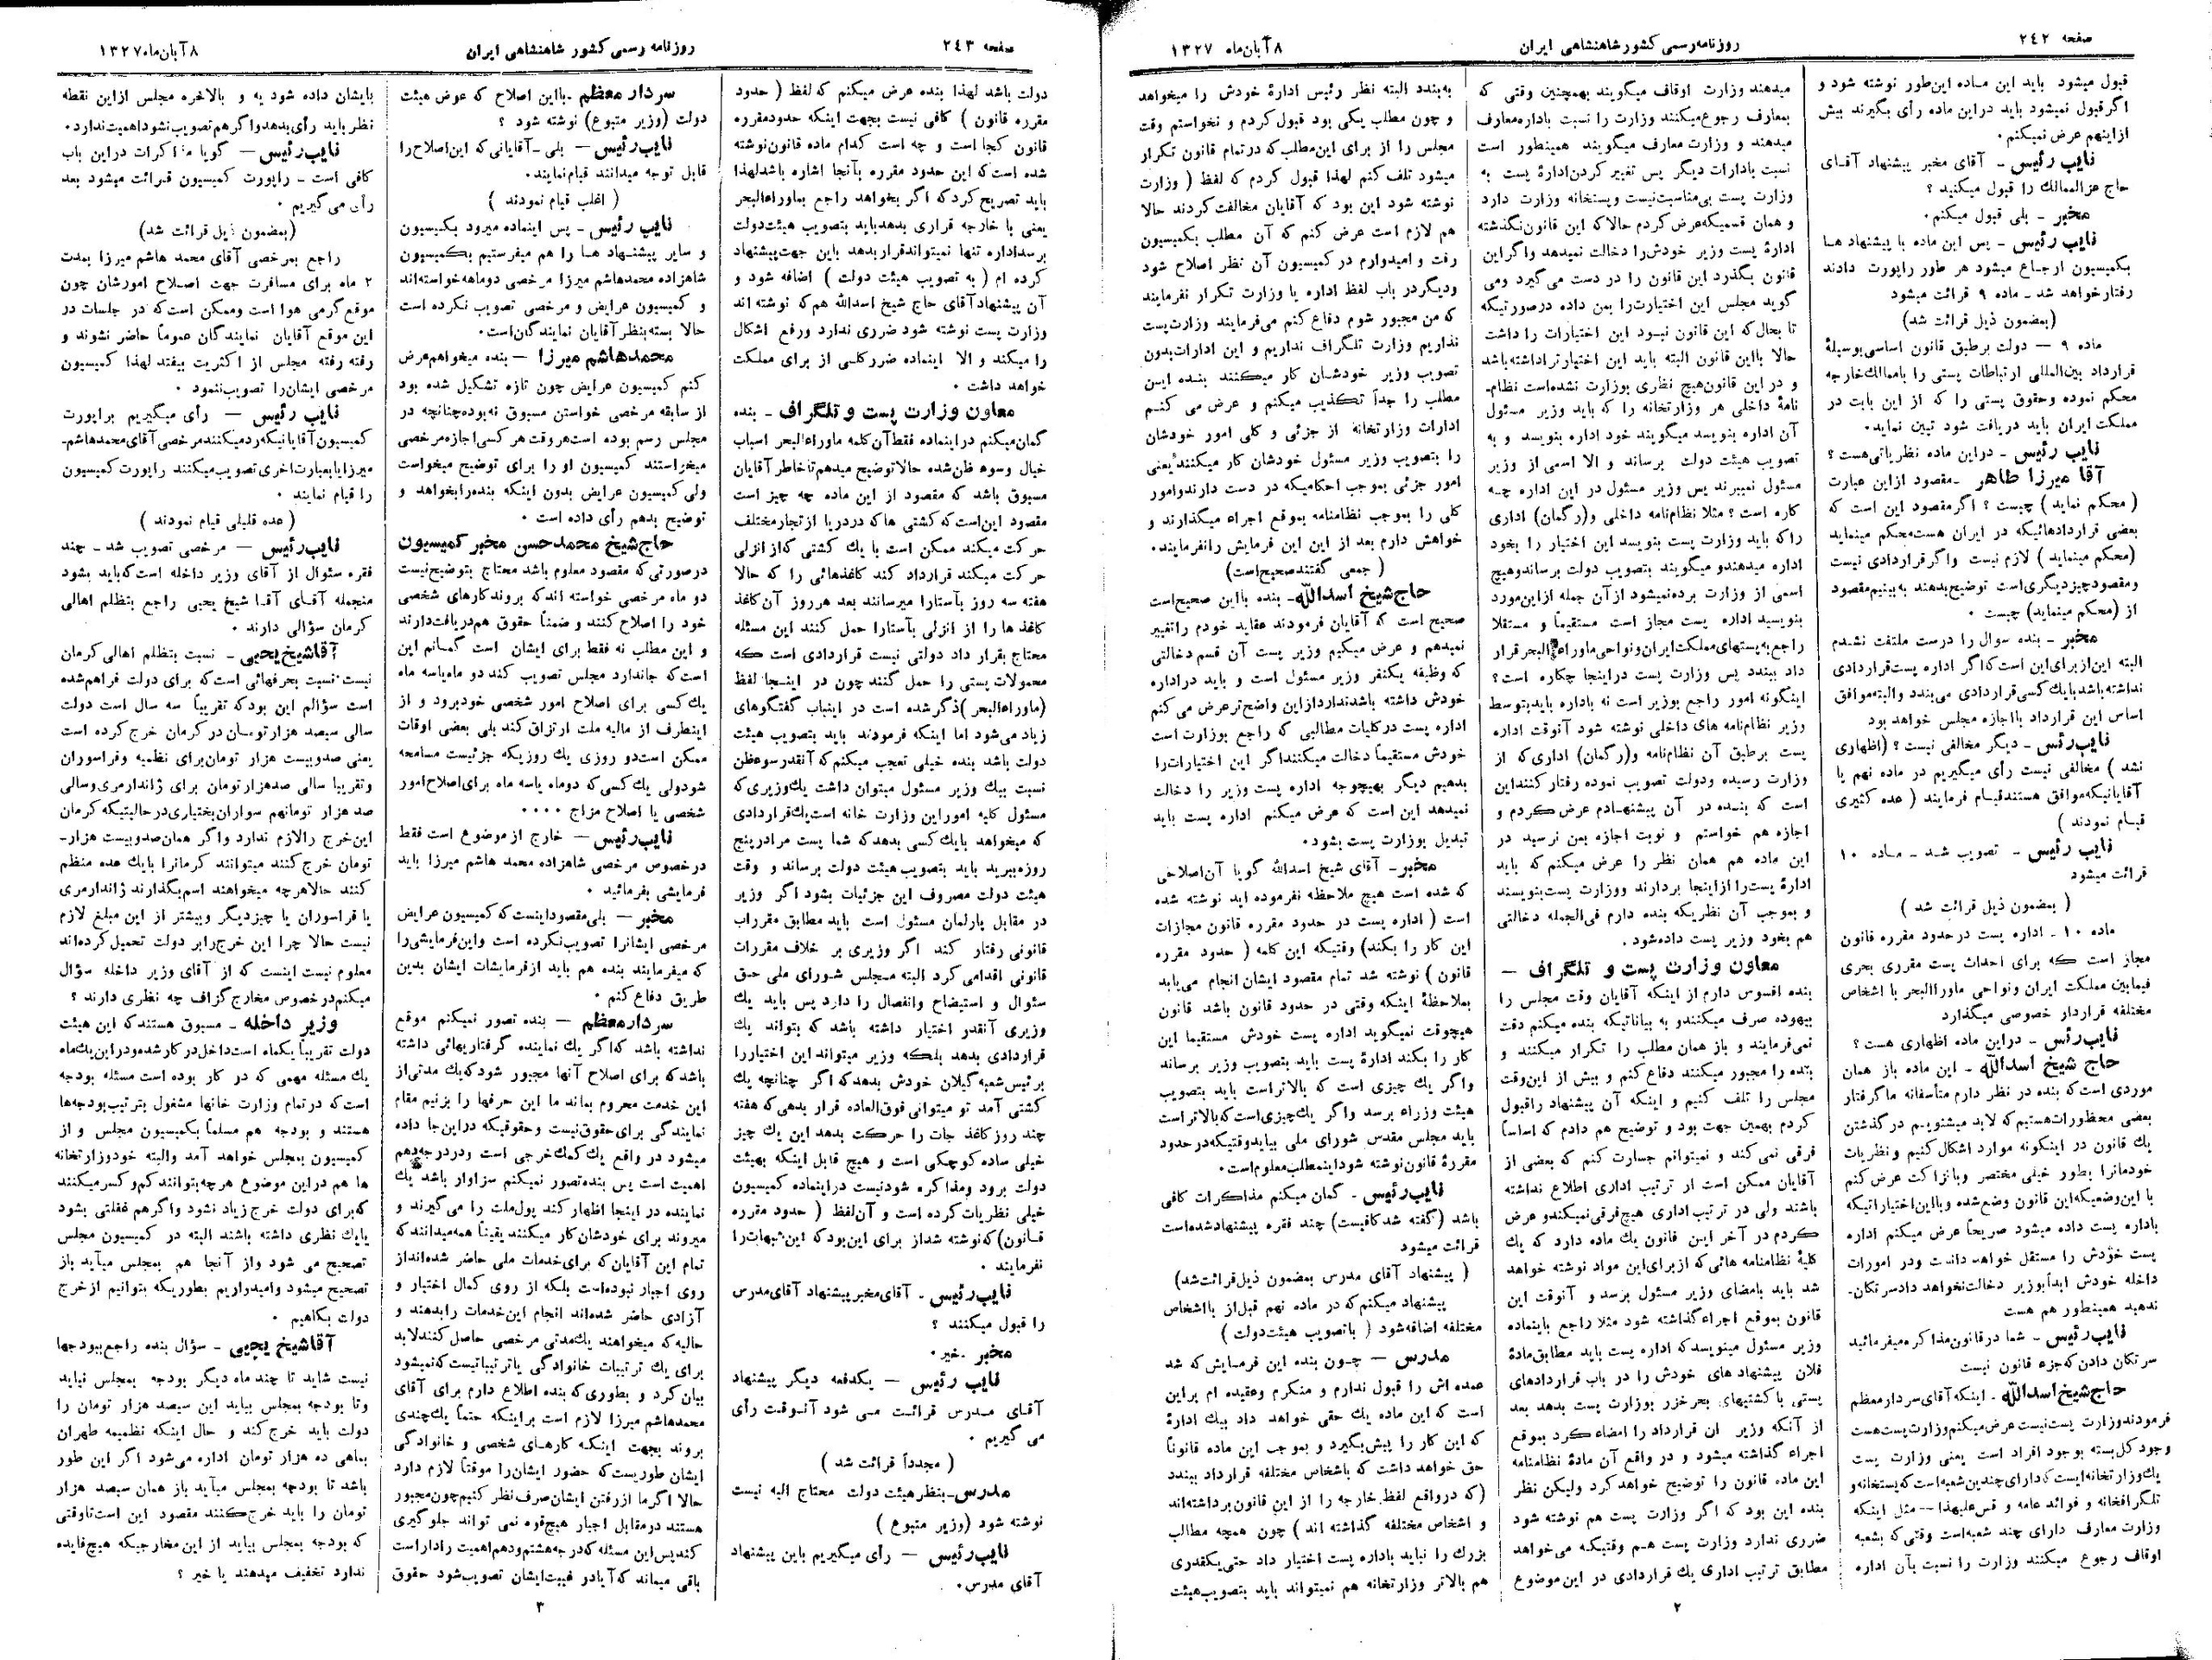 صفحه ۲۴۲
روزنامه رسمی کشور شاهنشاهی ایران
۸ آبان ماه ۱۳۲۷
قبول میشود باید این ماده این‌طور نوشته شود و
اگر قبول نمیشود باید در این ماده رأی بگیرند بیش
از اینهم عرض نمیکنم.
نایب رئیس - آقای مخبر پیشنهاد آقای
حاج عزالممالک را قبول میکنید؟
مخبر - بلی قبول میکنم.
نایب رئیس - پس این ماده با پیشنهاد ها
بکمیسیون ارجاع میشود هر طور راپورت دادند
رفتار خواهد شد - ماده ۹ قرائت میشود
(بمضمون ذیل قرائت شد)
ماده ۹ — دولت بر طبق قانون اساسی بوسیلهٔ
قرارداد بین‌المللی ارتباطات پستی را با ممالک خارجه
محکم نموده و حقوق پستی را که از این بابت در
مملکت ایران باید دریافت شود تبیین نماید.
نایب رئیس - در این ماده نظریاتی هست؟
آقا میرزا طاهر - مقصود از این عبارت
(محکم نماید) چیست؟ اگر مقصود این است که
بعضی قراردادهائیکه در ایران هست محکم مینماید
(محکم مینماید) لازم نیست و اگر قراردادی نیست
و مقصود چیز دیگری است توضیح بدهند به بینیم مقصود
از (محکم مینماید) چیست.
مخبر - بنده سوال را درست ملتفت نشدم
البته این از برای این است که اگر اداره پست قراردادی
نداشته باشد با یک کسی قراردادی می‌بندد و البته موافق
اساس این قرارداد با اجازه مجلس خواهد بود
نایب رئس - دیگر مخالفی نیست؟ (اظهاری
نشد) مخالفی نیست رأی میگیریم در ماده نهم با
آقایانیکه موافق هستند قیام فرمایند (عده کثیری
قیام نمودند)
نایب رئیس - تصویب شد - ماده ۱۰
قرائت میشود
(بمضمون ذیل قرائت شد)
ماده ۱۰ - اداره پست در حدود مقرره قانون
مجاز است که برای احداث پست مقرری بحری
فیمابین مملکت ایران و نواحی ماوراالبحر با اشخاص
مختلفه قرارداد خصوصی میگذارد
نایب رئس - در این ماده اظهاری هست؟
حاج شیخ اسدالله - این ماده باز همان
موردی است که بنده در نظر دارم متأسفانه ما گرفتار
بعضی محظورات هستیم که لابد میشنویم در گذشتن
یک قانون در اینگونه موارد اشکال کنیم و نظریات
خودمانرا بطور خیلی مختصر و با نزاکت عرض کنم
با این وضعیکه این قانون وضع شده و با این اختیاراتیکه
باداره پست داده میشود صریحاً عرض میکنم اداره
پست خودش را مستقل خواهد دانست و در امورات
داخله خودش ابداً بوزیر دخالت نخواهد داد سر تکان-
ندهید همینطور هم هست
نایب رئیس - شما در قانون مذاکره میفرمائید
سر تکان دادن که جزء قانون نیست
حاج شیخ اسدالله - اینکه آقای سردار معظم
فرمودند وزارت پست نیست عرض میکنم وزارت پست هست
وجود کل بسته بوجود افراد است یعنی وزارت پست
یک وزارتخانه ایست که دارای چندین شعبه است که پستخانه و
تلگرافخانه و فوائد عامه و قس علیهذا -- مثل اینکه
وزارت معارف دارای چند شعبه است وقتی که بشعبه
اوقاف رجوع میکنند وزارت را نسبت بآن اداره
میدهند وزارت اوقاف میگویند بهمچنین وقتی که
بمعارف رجوع میکنند وزارت را نسبت باداره معارف
میدهند و وزارت معارف میگویند همینطور است
نسبت بادارات دیگر پس تغییر کردن ادارهٔ پست به
وزارت پست بی مناسبت نیست و پستخانه وزارت دارد
و همان قسمیکه عرض کردم حالا که این قانون نگذشته
ادارهٔ پست وزیر خودش را دخالت نمیدهد و اگر این
قانون بگذرد این قانون را در دست می گیرد و می
گوید مجلس این اختیارت را بمن داده در صورتیکه
تا بحال که این قانون نبود این اختیارات را داشت
حالا با این قانون البته باید این اختیار تر اداشته باشد
و در این قانون هیچ نظری بوزارت نشده است نظام-
نامهٔ داخلی هر وزارتخانه را که باید وزیر مسئول
آن اداره بنویسد میگویند خود اداره بنویسد و به
تصویب هیئت دولت برساند و الا اسمی از وزیر
مسئول نمیبرند پس وزیر مسئول در این اداره چه
کاره است؟ مثلا نظام‌نامه داخلی و (رگمان) اداری
را که باید وزارت پست بنویسد این اختیار را بخود
اداره میدهند و میگویند بتصویب دولت برساند و هیچ
اسمی از وزارت برده نمیشود از آن جمله از این مورد
بنویسید اداره پست مجاز است مستقیماً و مستقلا
راجع به پستهای مملکت ایران و نواحی ماوراء البحر قرار
داد ببندد پس وزارت پست در اینجا چکاره است؟
اینگونه امور راجع بوزیر است نه باداره باید بتوسط
وزیر نظام‌نامه های داخلی نوشته شود آنوقت اداره
پست بر طبق آن نظام‌نامه و (رگمان) اداری که از
وزارت رسیده و دولت تصویب نموده رفتار کنند این
است که بنده در آن پیشنهادم عرض کردم و
اجازه هم خواستم و نوبت اجازه بمن نرسید در
این ماده هم همان نظر را عرض میکنم که باید
ادارهٔ پست را از اینجا بردارند و وزارت پست بنویسند
و بموجب آن نظریکه بنده دارم فی‌الجمله دخالتی
هم بخود وزیر پست داده شود.
معاون وزارت پست و تلگراف —
بنده افسوس دارم از اینکه آقایان وقت مجلس را
بیهوده صرف میکنند و به بیاناتیکه بنده میکنم دقت
نمی‌فرمایند و باز همان مطلب را تکرار میکنند و
بنده را مجبور میکنند دفاع کنم و بیش از این وقت
مجلس را تلف کنیم و اینکه آن پیشنهاد را قبول
کردم بهمین جهت بود و توضیح هم دادم که اساساً
فرقی نمی کند و نمیتوانم جسارت کنم که بعضی از
آقایان ممکن است از ترتیب اداری اطلاع نداشته
باشند ولی در ترتیب اداری هیچ فرقی نمیکند و عرض
کردم در آخر این قانون یک ماده دارد که یک
کلیهٔ نظامنامه هائی که از برای این مواد نوشته خواهد
شد باید بامضای وزیر مسئول برسد و آنوقت این
قانون بموقع اجراء گذاشته شود مثلا راجع باینماده
وزیر مسئول مینویسد که اداره پست باید مطابق مادهٔ
فلان پیشنهاد های خودش را در باب قراردادهای
پستی با کشتیهای بحر خزر بوزارت پست بدهد بعد
از آنکه وزیر ان قرارداد را امضاء کرد بموقع
اجراء گذاشته میشود و در واقع آن مادهٔ نظامنامه
این ماده قانون را توضیح خواهد کرد ولیکن نظر
بنده این بود که اگر وزارت پست هم نوشته شود
ضرری ندارد وزارت پست هم وقتیکه می‌خواهد
مطابق ترتیب اداری یک قراردادی در این موضوع
به‌بندد البته نظر رئیس ادارهٔ خودش را میخواهد
و چون مطلب یکی بود قبول کردم و نخواستم وقت
مجلس را از برای این مطلب که در تمام قانون تکرار
میشود تلف کنم لهذا قبول کردم که لفظ (وزارت
نوشته شود این بود که آقایان مخالفت کردند حالا
هم لازم است عرض کنم که آن مطلب بکمیسیون
رفت و امیدوارم در کمیسیون آن نظر اصلاح شود
و دیگر در باب لفظ اداره یا وزارت تکرار نفرمایند
که من مجبور شوم دفاع کنم می‌فرمایند وزارت پست
نداریم وزارت تلگراف نداریم و این ادارات بدون
تصویب وزیر خودشان کار میکنند بنده این
مطلب را جداً تکذیب میکنم و عرض می کنم
ادارات وزارتخانه از جزئی و کلی امور خودشان
را بتصویب وزیر مسئول خودشان کار میکنند یعنی
امور جزئی بموجب احکامیکه در دست دارند و امور
کلی را بموجب نظامنامه بموقع اجراء میگذارند و
خواهش دارم بعد از این این فرمایش را نفرمایند.
(جمعی گفتند صحیح است)
حاج شیخ اسدالله - بنده با این صحیح است
صحیح است که آقایان فرمودند عقاید خودم را تغییر
نمیدهم و عرض میکنم وزیر پست آن قسم دخالتی
که وظیفه یکنفر وزیر مسئول است و باید در اداره
خودش داشته باشد ندارد از این واضح‌تر عرض می کنم
اداره پست در کلیات مطالبی که راجع بوزارت است
خودش مستقیماً دخالت میکنند اگر این اختیارات را
بدهیم دیگر بهیچوجه اداره پست وزیر را دخالت
نمیدهد این است که عرض میکنم اداره پست باید
تبدیل بوزارت پست بشود.
مخبر - آقای شیخ اسدالله گویا آن اصلاحی
که شده است هیچ ملاحظه نفرموده اید نوشته شده
است (اداره پست در حدود مقرره قانون مجازات
این کار را بکند) وقتیکه این کلمه (حدود مقرره
قانون) نوشته شد تمام مقصود ایشان انجام می‌یابد
بملاحظهٔ اینکه وقتی در حدود قانون باشد قانون
هیچوقت نمیگوید اداره پست خودش مستقیما این
کار را بکند ادارهٔ پست باید بتصویب وزیر برساند
و اگر یک چیزی است که بالاتر است باید بتصویب
هیئت وزراء برسد و اگر یک چیزی است که بالاتر است
باید مجلس مقدس شورای ملی بیاید وقتیکه در حدود
مقررهٔ قانون نوشته شود اینمطلب معلوم است.
نایب رئیس - گمان میکنم مذاکرات کافی
باشد (گفته شد کافیست) چند فقره پیشنهاد شده است
قرائت میشود
(پیشنهاد آقای مدرس بمضمون ذیل قرائت شد)
پیشنهاد میکنم که در ماده نهم قبل از با اشخاص
مختلفه اضافه شود (با تصویب هیئت دولت)
مدرس — چون بنده این فرمایش که شد
عمده اش را قبول ندارم و منکرم و عقیده ام بر این
است که این ماده یک حقی خواهد داد بیک ادارهٔ
که این کار را پیش بگیرد و بموجب این ماده قانوناً
حق خواهد داشت که باشخاص مختلفه قرارداد ببندد
(که در واقع لفظ خارجه را از این قانون برداشته‌اند
و اشخاص مختلفه گذاشته اند) چون همچه مطالب
بزرک را نباید باداره پست اختیار داد حتی یکقدری
هم بالاتر وزارتخانه هم نمیتواند باید بتصویب هیئت
۲
صفحه ۲۴۳
روزنامه رسمی کشور شاهنشاهی ایران
۸ آبان ماه ۱۳۲۷
دولت باشد لهذا بنده عرض میکنم که لفظ (حدود
مقرره قانون) کافی نیست بجهت اینکه حدود مقرره
قانون کجا است و چه است کدام ماده قانون نوشته
شده است که این حدود مقرره بآنجا اشاره باشد لهذا
باید تصریح کرد که اگر بخواهد راجع بماوراءالبحر
یعنی با خارجه قراری بدهد باید بتصویب هیئت دولت
برسد اداره تنها نمیتواند قرار بدهد باین جهت پیشنهاد
کرده ام (به تصویب هیئت دولت) اضافه شود و
آن پیشنهاد آقای حاج شیخ اسدالله هم که نوشته اند
وزارت پست نوشته شود ضرری ندارد و رفع اشکال
را میکند و الا اینماده ضرر کلی از برای مملکت
خواهد داشت.
معاون وزارت پست و تلگراف - بنده
گمان میکنم در اینماده فقط آن کلمه ماوراءالبحر اسباب
خیال و سوء ظن شده حالا توضیح میدهم تا خاطر آقایان
مسبوق باشد که مقصود از این ماده چه چیز است
مقصود این است که کشتی ها که در دریا از تجار مختلف
حرکت میکند ممکن است با یک کشتی که از انزلی
حرکت میکند قرارداد کند کاغذهائی را که حالا
هفته سه روز بآستارا میرسانند بعد هر روز آن کاغذ
کاغذ ها را از انزلی بآستارا حمل کنند این مسئله
محتاج بقرار داد دولتی نیست قراردادی است که
محمولات پستی را حمل کنند چون در اینجا لفظ
(ماوراءالبحر) ذگر شده است در اینباب گفتگوهای
زیاد می‌شود اما اینکه فرمودند باید بتصویب هیئت
دولت باشد بنده خیلی تعجب میکنم که آنقدر سوء ظن
نسبت بیک وزیر مسئول میتوان داشت یک وزیری که
مسئول کلیه امور این وزارت خانه است یک قراردادی
که میخواهد با یک کسی بدهد که شما پست مرا در پنج
روزه ببرید باید بتصویب هیئت دولت برساند و وقت
هیئت دولت مصروف این جزئیات بشود اگر وزیر
در مقابل پارلمان مسئول است باید مطابق مقررات
قانونی رفتار کند اگر وزیری بر خلاف مقررات
قانونی اقدامی کرد البته مجلس شورای ملی حق
سئوال و استیضاح و انفصال را دارد پس باید یک
وزیری آنقدر اختیار داشته باشد که بتواند یک
قراردادی بدهد بلکه وزیر میتواند این اختیار را
برئیس شعبه گیلان خودش بدهد که اگر چنانچه یک
کشتی آمد تو میتوانی فوق العاده قرار بدهی که هفته
چند روز کاغذ جات را حرکت بدهد این یک چیز
خیلی ساده کوچکی است و هیچ قابل اینکه بهیئت
دولت برود و مذاکره شود نیست در اینماده کمیسیون
خیلی نظریات کرده است و آن لفظ (حدود مقرره
قانون) که نوشته شد از برای این بود که این شبهات را
نفرمایند.
نایب رئیس - آقای مخبر پیشنهاد آقای مدرس
را قبول میکنند؟
مخبر - خیر.
نایب رئیس — یکدفعه دیگر پیشنهاد
آقای مدرس قرائت می شود آنوقت رأی
می گیریم.
(مجدداً قرائت شد)
مدرس - بنظر هیئت دولت محتاج الیه نیست
نوشته شود (وزیر متبوع)
نایب رئیس — رأی میگیریم باین پیشنهاد
آقای مدرس.
سردار معظم - با این اصلاح که عوض هیئت
دولت (وزیر متبوع) نوشته شود؟
نایب رئیس — بلی - آقایانی که این اصلاح را
قابل توجه میدانند قیام نمایند.
(اغلب قیام نمودند)
نایب رئیس - پس اینماده میرود بکمیسیون
و سایر پیشنهاد ها را هم میفرستیم بکمیسیون
شاهزاده محمد هاشم میرزا مرخصی دوماهه خواسته‌اند
و کمیسیون عرایض و مرخصی تصویب نکرده است
حالا بسته بنظر آقایان نمایندگان است.
محمد هاشم میرزا — بنده میخواهم عرض
کنم کمیسیون عرایض چون تازه تشکیل شده بود
از سابقه مرخصی خواستن مسبوق نه بوده چنانچه در
مجلس رسم بوده است هر وقت هر کسی اجازه مرخصی
میخواستند کمیسیون او را برای توضیح میخواست
ولی کمیسیون عرایض بدون اینکه بنده را بخواهد و
توضیح بدهم رأی داده است.
حاج شیخ محمد حسن مخبر کمیسیون
در صورتی که مقصود معلوم باشد محتاج بتوضیح نیست
دو ماه مرخصی خواسته اند که بروند کارهای شخصی
خود را اصلاح کنند و ضمناً حقوق هم دریافت دارند
و این مطلب نه فقط برای ایشان است گمانم این
است که جاندارد مجلس تصویب کند دو ماه یا سه ماه
یک کسی برای اصلاح امور شخصی خود برود و از
اینطرف از مالیه ملت ارتزاق کند بلی بعضی اوقات
ممکن است دو روزی یک روزیکه جزئیست مسامحه
شود ولی یک کسی که دوماه یا سه ماه برای اصلاح امور
شخصی یا اصلاح مزاج ....
نایب رئیس — خارج از موضوع است فقط
در خصوص مرخصی شاهزاده محمد هاشم میرزا باید
فرمایشی بفرمائید.
مخبر — بلی مقصود اینست که کمیسیون عرایض
مرخصی ایشانرا تصویب نکرده است و این فرمایشی را
که میفرمایند بنده هم باید از فرمایشات ایشان بدین
طریق دفاع کنم.
سردار معظم — بنده تصور نمیکنم موقع
نداشته باشد که اگر یک نماینده گرفتاریهائی داشته
باشد که برای اصلاح آنها مجبور شود که یک مدتی از
این خدمت محروم بماند ما این حرفها را بزنیم مقام
نمایندگی برای حقوق نیست و حقوقیکه در این جا داده
میشود در واقع یک کمک خرجی است و در درجه دهم
اهمیت است پس بنده تصور نمیکنم سزاوار باشد یک
نماینده در اینجا اظهار کند پول ملت را می گیرند و
میروند برای خودشان کار میکنند یقیناً همه میدانند که
تمام این آقایان که برای خدمات ملی حاضر شده‌اند از
روی اجبار نبوده است بلکه از روی کمال اختیار و
آزادی حاضر شده‌اند انجام این خدمات را بدهند و
حالیه که میخواهند یک مدتی مرخصی حاصل کنند لابد
برای یک ترتیبات خانوادگی یا ترتیباتیست که نمیشود
بیان کرد و بطوری که بنده اطلاع دارم برای آقای
محمد هاشم میرزا لازم است بر اینکه حتماً یک چندی
بروند بجهت اینکه کارهای شخصی و خانوادگی
ایشان طوریست که حضور ایشان را موقتاً لازم دارد
حالا اگر ما از رفتن ایشان صرف نظر کنیم چون مجبور
هستند در مقابل اجبار هیچ قوه نمی تواند جلوگیری
کند پس این مسئله که درجه هشتم و دهم اهمیت را دار است
باقی میماند که آیا در غیبت ایشان تصویب شود حقوق
بایشان داده شود یه و بالاخره مجلس از این نقطه
نظر باید رأی بدهد و اگر هم تصویب نشود اهمیت ندارد.
نایب رئیس — گویا مذاکرات در این باب
کافی است - راپورت کمیسیون قرائت میشود بعد
رأی می گیریم.
(بمضمون ذیل قرائت شد)
راجع بمرخصی آقای محمد هاشم میرزا بمدت
۲ ماه برای مسافرت جهت اصلاح امورشان چون
موقع گرمی هوا است و ممکن است که در جلسات در
این موقع آقایان نمایندگان عموماً حاضر نشوند و
رفته رفته مجلس از اکثریت بیفتد لهذا کمیسیون
مرخصی ایشان را تصویب ننمود.
نایب رئیس — رأی میگیریم براپورت
کمیسیون آقایانیکه رد میکنند مرخصی آقای محمد هاشم-
میرزا یا بعبارت اخری تصویب میکنند راپورت کمیسیون
را قیام نمایند.
(عده قلیلی قیام نمودند)
نایب رئیس — مرخصی تصویب شد - چند
فقره سئوال از آقای وزیر داخله است که باید بشود
منجمله آقای آقا شیخ یحیی راجع بتظلم اهالی
کرمان سؤالی دارند.
آقا شیخ یحیی - نسبت بتظلم اهالی کرمان
نیست نسبت بحرفهائی است که برای دولت فراهم شده
است سؤالم این بود که تقریباً سه سال است دولت
سالی سیصد هزار تومان در کرمان خرج کرده است
یعنی صد و بیست هزار تومان برای نظمیه و قراسوران
و تقریبا سالی صد هزار تومان برای ژاندارمری و سالی
صد هزار تومانهم سواران بختیاری در حالیتیکه کرمان
این خرج را لازم ندارد و اگر همان صد و بیست هزار-
تومان خرج کنند میتوانند کرمانرا با یک عده منظم
کنند حالا هر چه میخواهند اسم بگذارند ژاندارمری
یا قراسوران یا چیز دیگر و بیشتر از این مبلغ لازم
نیست حالا چرا این خرج را بر دولت تحمیل کرده‌اند
معلوم نیست اینست که از آقای وزیر داخله سؤال
میکنم در خصوص مخارج گزاف چه نظری دارند؟
وزیر داخله - مسبوق هستند که این هیئت
دولت تقریباً یکماه است داخل در کار شده و در این یک ماه
یک مسئله مهمی که در کار بوده است مسئله بودجه
است که در تمام وزارت خانها مشغول بترتیب بودجه‌ها
هستند و بودجه هم مسلماً بکمیسیون مجلس و از
کمیسیون بمجلس خواهد آمد و البته خود وزارتخانه
ها هم در این موضوع هر چه بتوانند کم و کسر میکنند
که برای دولت خرج زیاد نشود و اگر هم غفلتی بشود
یا یک نظری داشته باشند البته در کمیسیون مجلس
تصحیح می شود و از آنجا هم بمجلس میآید باز
تصحیح میشود و امیدواریم بطوریکه بتوانیم از خرج
دولت بکاهیم.
آقا شیخ یحیی - سؤال بنده راجع ببودجها
نیست شاید تا چند ماه دیگر بودجه بمجلس نیاید
و تا بودجه بمجلس بیاید این سیصد هزار تومان را
دولت باید خرج کند و حال اینکه نظمیه طهران
بماهی ده هزار تومان اداره می‌شود اگر این طور
باشد تا بودجه بمجلس میآید باز همان سیصد هزار
تومان را باید خرج کنند مقصود این است تا وقتی
که بودجه بمجلس بیاید از این مخارجیکه هیچ فایده
ندارد تخفیف میدهند یا خیر؟
۳